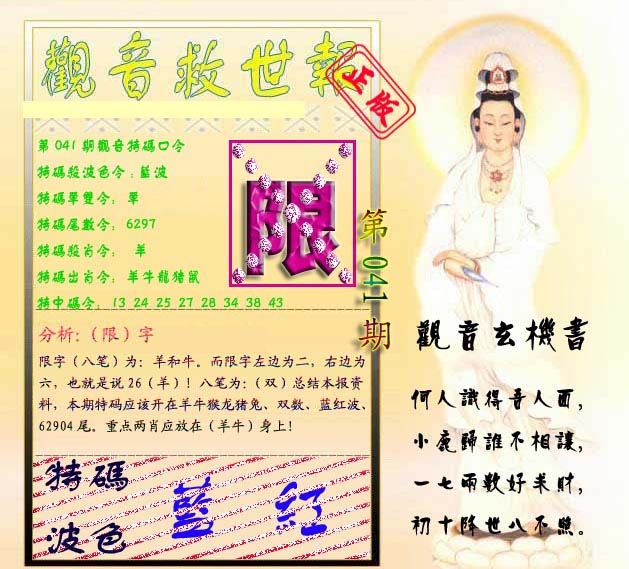 觀音救世報
正版
第041期觀音特碼口令
特碼殺波色令：藍波
特碼單雙令： 單
特碼尾數令： 6297
特碼殺肖令： 羊
特碼出肖令： 羊牛龍猪鼠
特中碼令： 13 24 25 27 28 34 38 43
限
第041期
分析:（限）字
限字（八笔）为：羊和牛。而限字左边为二，右边为
六，也就是说26（羊）！八笔为:（双）总结本报资
料，本期特码应该开在羊牛猴龙猪兔、双数、蓝红波、
62904尾。重点两肖应放在（羊牛）身上！
特碼
波色
藍 红
觀音玄機書
何人識得吾人面，
小鹿歸誰不相讓，
一七兩數好米財，
初十降世八不照。